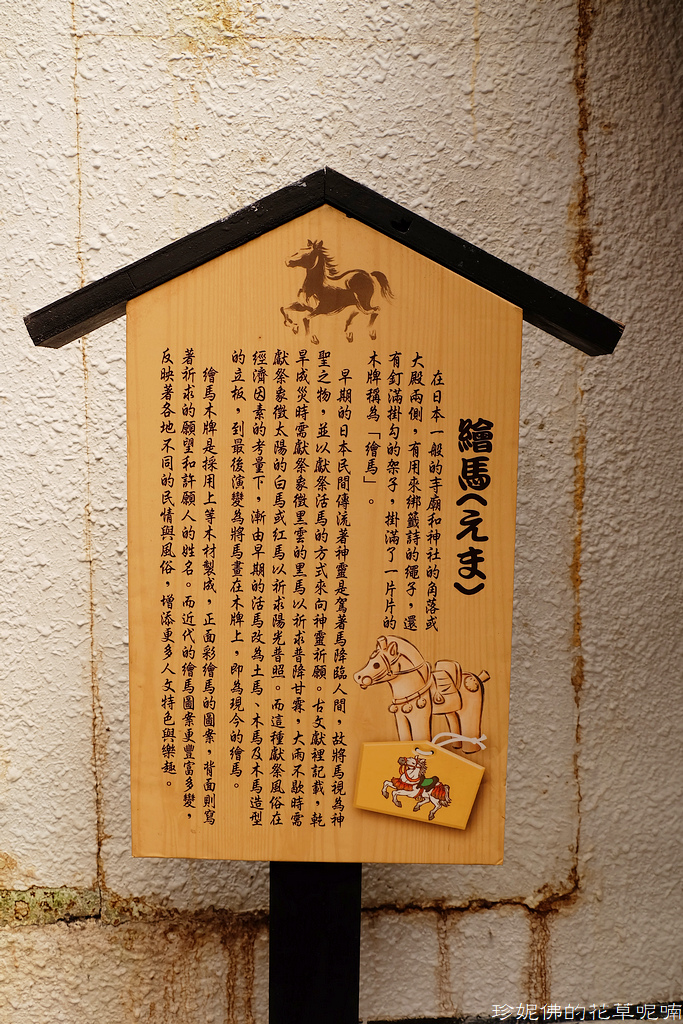 繪馬(えま)
在日本一般的寺廟和神社的角落或
大殿兩側，有用來綁籤詩的繩子，還
有釘滿掛勾的架子，掛滿了一片片的
木牌稱為「繪馬」。
早期的日本民間傳流著神靈是駕著馬降臨人間，故將馬視為神
聖之物，並以獻祭活馬的方式來向神靈祈願。古文獻裡記載，乾
旱成災時需獻祭象徵黑雲的黑馬以祈求普降甘霖，大雨不歇時需
獻祭象徵太陽的白馬或紅馬以祈求陽光普照。而這種獻祭風俗在
經濟因素的考量下，漸由早期的活馬改為土馬、木馬及木馬造型
的立板，到最後演變為將馬畫在木牌上，即為現今的繪馬。
繪馬木牌是採用上等木材製成，正面彩繪馬的圖案，背面則寫
著祈求的願望和許願人的姓名。而近代的繪馬圖案更豐富多變，
反映著各地不同的民情與風俗，增添更多人文特色與樂趣。
珍妮佛的花草呢喃